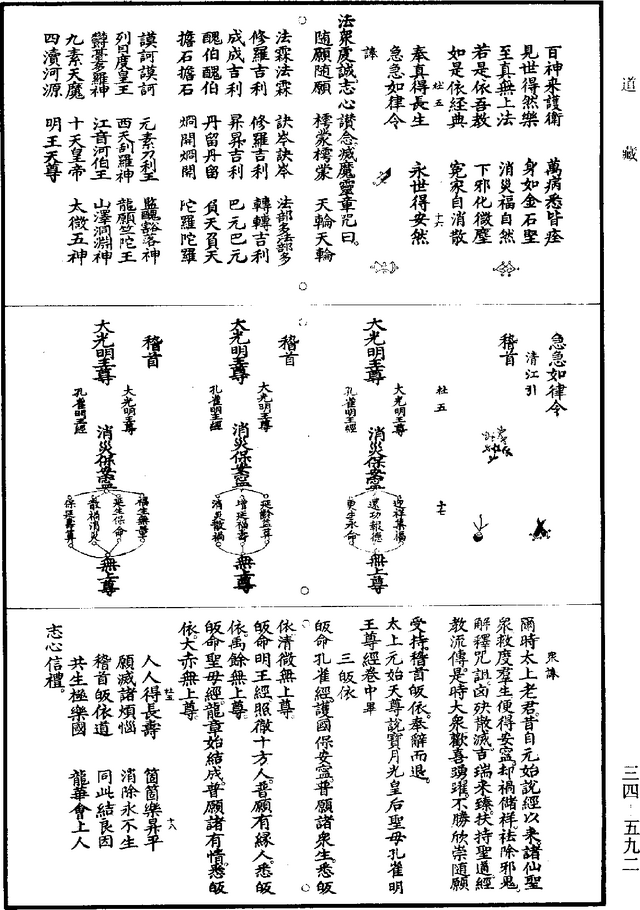 道藏
百神來護衛　萬病悉皆痊
見世得然樂　身如金石堅
至真無上法　消災福自然
若是依吾教　下邪化微塵
如是依經典　冤家自消散
杜五　十六
奉真得長生　永世得安然
急急如律令
誅
法衆虔誠志心讚念滅魔靈章咒曰
隨願隨願　樗蒙樗蒙　天輪天輪
法霖法霖　訣岑訣岑　法部多法部多
修羅吉利　修羅吉利　轉轉吉利
成成吉利　昇昇吉利　巴元巴元
醜伯醜伯　丹留丹留　負天負天
擔石擔石　烱開烱開　陀羅陀羅
謨訶謨訶　元素刀利王　監醜谿落神
列日度皇王　西天刮羅神　龍願竺陀王
欝基多羅神　江音河伯王　山澤洞淵神
九素天魔　十天皇帝　太微五神
四瀆河源　明王天尊
急急如律令
清江引
稽首
杜五　十七
大光明王尊
大光明王尊
孔雀明王經
消災保安寧
迎祥集福
還功報德
更生永命
無上尊
稽首
大光明王尊
大光明王尊
孔雀明王經
消災保安寧
延齡益筭
增延福壽
消災散禍
無上尊
稽首
大光明王尊
大光明王尊
孔雀明王經
消災保安寧
福生無量
延生保命
散禍消災
保延壽筭
無上尊
衆誅
爾時太上老君昔自元始說經以來諸仙聖
衆救度羣生便得安寧却禍儲祥祛除邪鬼
解釋咒詛凶殃散滅吉瑞來臻扶持聖通經
教流傳是時大衆歡喜踴躍不勝欣崇隨願
受持稽首皈依奉辭而退
太上元始天尊說寶月光皇后聖母孔雀明
王尊經卷中畢
三皈依
皈命孔雀經護國保安寧普願諸衆生悉皈
依清微無上尊
皈命明王經照徹十方人普願有緣人悉皈
依禹餘無上尊
皈命聖母經龍章始結成普願諸有情悉皈
依大赤無上尊
杜五　十八
人人得長壽　箇箇樂昇平
願滅諸煩惱　消除永不生
稽首皈依道　同此結良因
共生極樂國　龍華會上人
志心信禮
三四·五九二